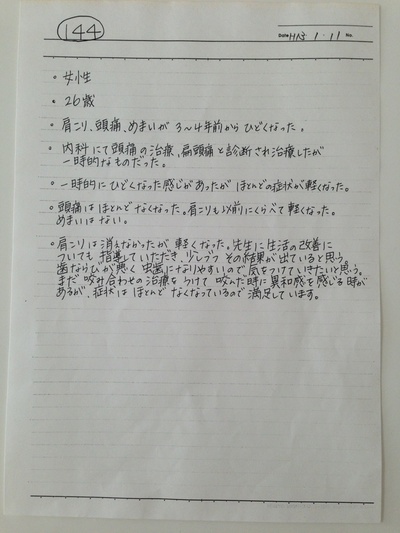 144
Date H13 1・11 No.
・女性
・26歳
・肩こり、頭痛、めまいが3〜4年前からひどくなった。
・内科にて頭痛の治療、扁頭痛と診断され治療したが
一時的なものだった。
・一時的にひどくなった感じがあったがほとんどの症状が軽くなった。
・頭痛はほとんどなくなった。肩こりも以前にくらべて軽くなった。
めまいはない。
・肩こりは消えなかったが軽くなった。先生に生活の改善に
ついても指導していただき、少しづつその結果が出ていると思う。
歯ならびが悪く虫歯になりやすいので気をつけていきたいと思う。
まだ咬み合わせの治療をうけて咬んだ時に異和感を感じる時が
あるが、症状はほとんどなくなっているので満足しています。